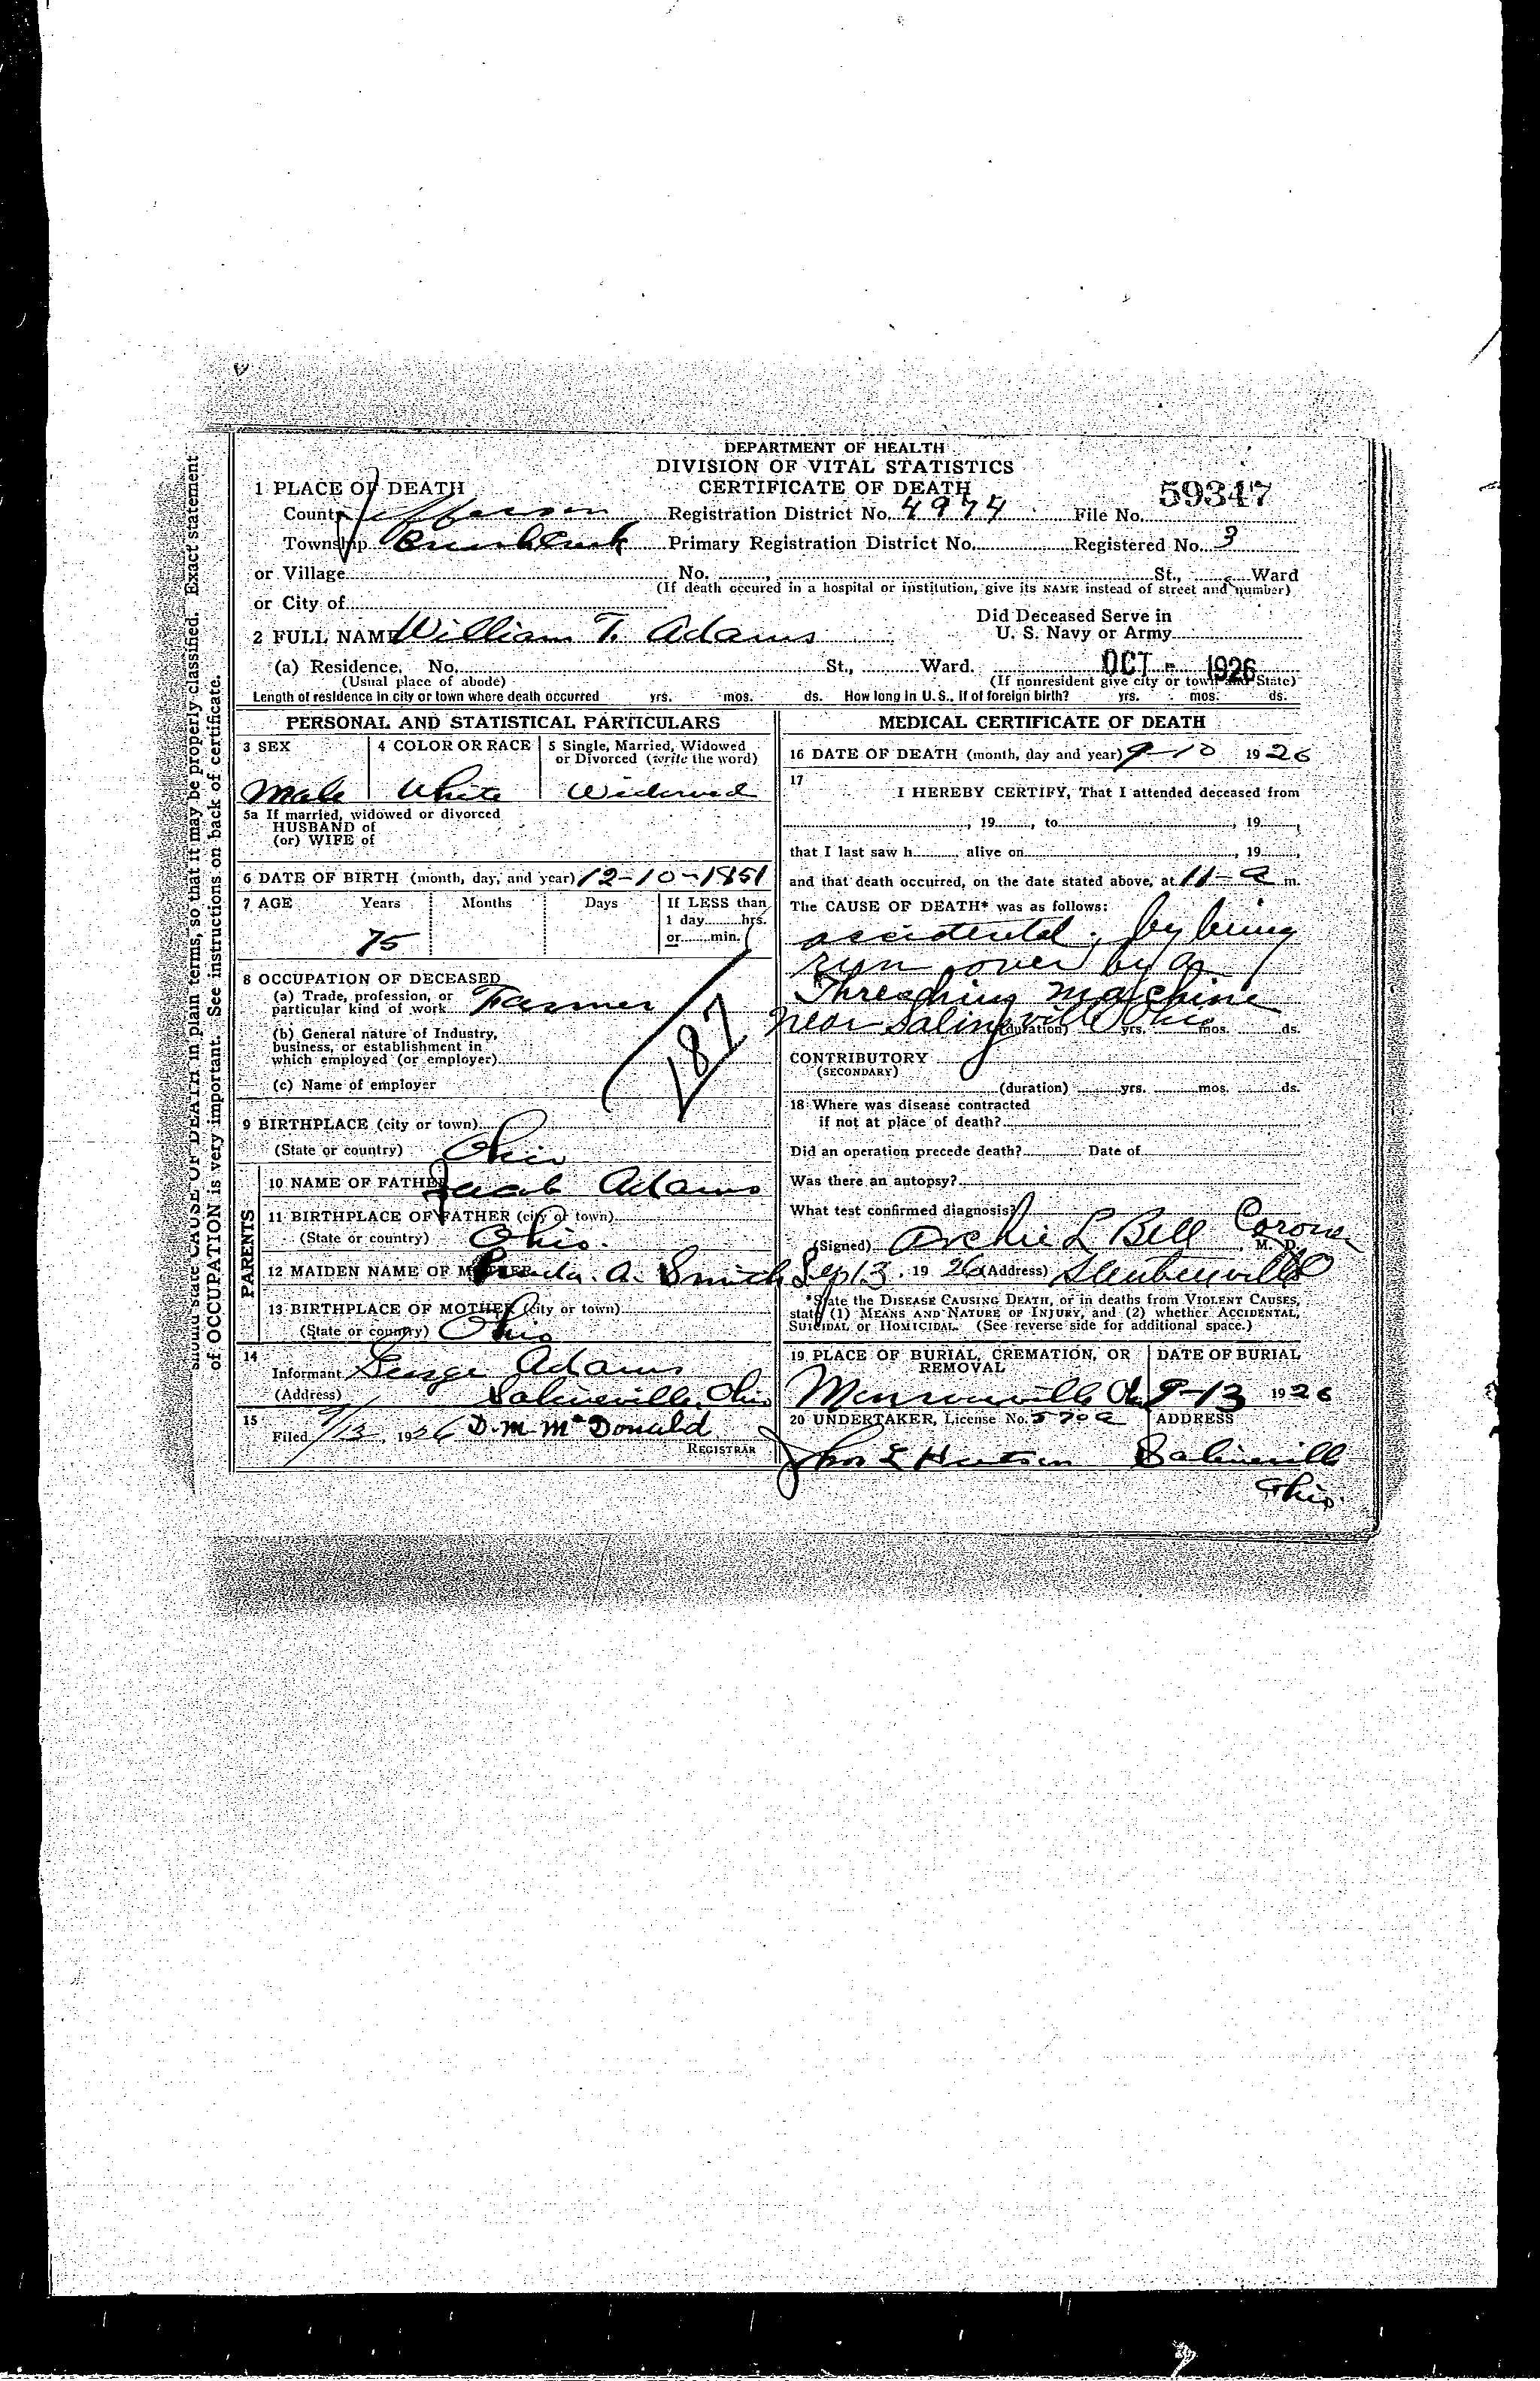 DEPARTMENT OF HEALTH
DIVISION OF VITAL STATISTICS
CERTIFICATE OF DEATH
59347
1 PLACE OF DEATH
County Jefferson Registration District No. 4974 File No.
Township Brush Creek Primary Registration District No. Registered No. 3
or Village No. St., Ward
(If death occured in a hospital or institution, give its NAME instead of street and number)
or City of
Did Deceased Serve in
U. S. Navy or Army
2 FULL NAME William T. Adams
(a) Residence. No. St., Ward. OCT 1926
(Usual place of abode) (If nonresident give city or town and State)
Length of residence in city or town where death occurred yrs. mos. ds. How long in U. S., If of foreign birth? yrs. mos. ds.
PERSONAL AND STATISTICAL PARTICULARS
3 SEX 4 COLOR OR RACE 5 Single, Married, Widowed
or Divorced (write the word)
Male White Widowed
5a If married, widowed or divorced
HUSBAND of
(or) WIFE of
6 DATE OF BIRTH (month, day, and year) 12-10-1851
7 AGE Years Months Days If LESS than
1 day hrs.
75 or min.
8 OCCUPATION OF DECEASED
(a) Trade, profession, or
particular kind of work Farmer
187
(b) General nature of Industry,
business, or establishment in
which employed (or employer)
(c) Name of employer
9 BIRTHPLACE (city or town)
(State or country) Ohio
PARENTS
10 NAME OF FATHER Jacob Adams
11 BIRTHPLACE OF FATHER (city or town)
(State or country) Ohio.
12 MAIDEN NAME OF MOTHER A. Smith
13 BIRTHPLACE OF MOTHER (city or town)
(State or country) Ohio
14
Informant George Adams
(Address) Salineville, Ohio
15
Filed 9/13, 1926 D. M. McDonald
REGISTRAR
MEDICAL CERTIFICATE OF DEATH
16 DATE OF DEATH (month, day and year) 9-10 1926
17
I HEREBY CERTIFY, That I attended deceased from
, 19 , to , 19 ,
that I last saw h alive on , 19 ,
and that death occurred, on the date stated above, at 11-a m.
The CAUSE OF DEATH* was as follows:
accidental, by being
run over by a
Threshing machine
near Salineville Ohio
(duration) yrs. mos. ds.
CONTRIBUTORY
(SECONDARY)
(duration) yrs. mos. ds.
18 Where was disease contracted
if not at place of death?
Did an operation precede death? Date of
Was there an autopsy?
What test confirmed diagnosis?
(Signed) Archie L Bell Coroner M. D.
Sep 13, 1926 (Address) Steubenville O
*State the DISEASE CAUSING DEATH, or in deaths from VIOLENT CAUSES,
state (1) MEANS AND NATURE OF INJURY, and (2) whether ACCIDENTAL,
SUICIDAL or HOMICIDAL. (See reverse side for additional space.)
19 PLACE OF BURIAL, CREMATION, OR
REMOVAL
DATE OF BURIAL
Monroeville O. 9-13 1926
20 UNDERTAKER, License No. 570a ADDRESS
Salineville
Ohio.
should state CAUSE OF DEATH in plain terms, so that it may be properly classified. Exact statement
of OCCUPATION is very important. See instructions on back of certificate.